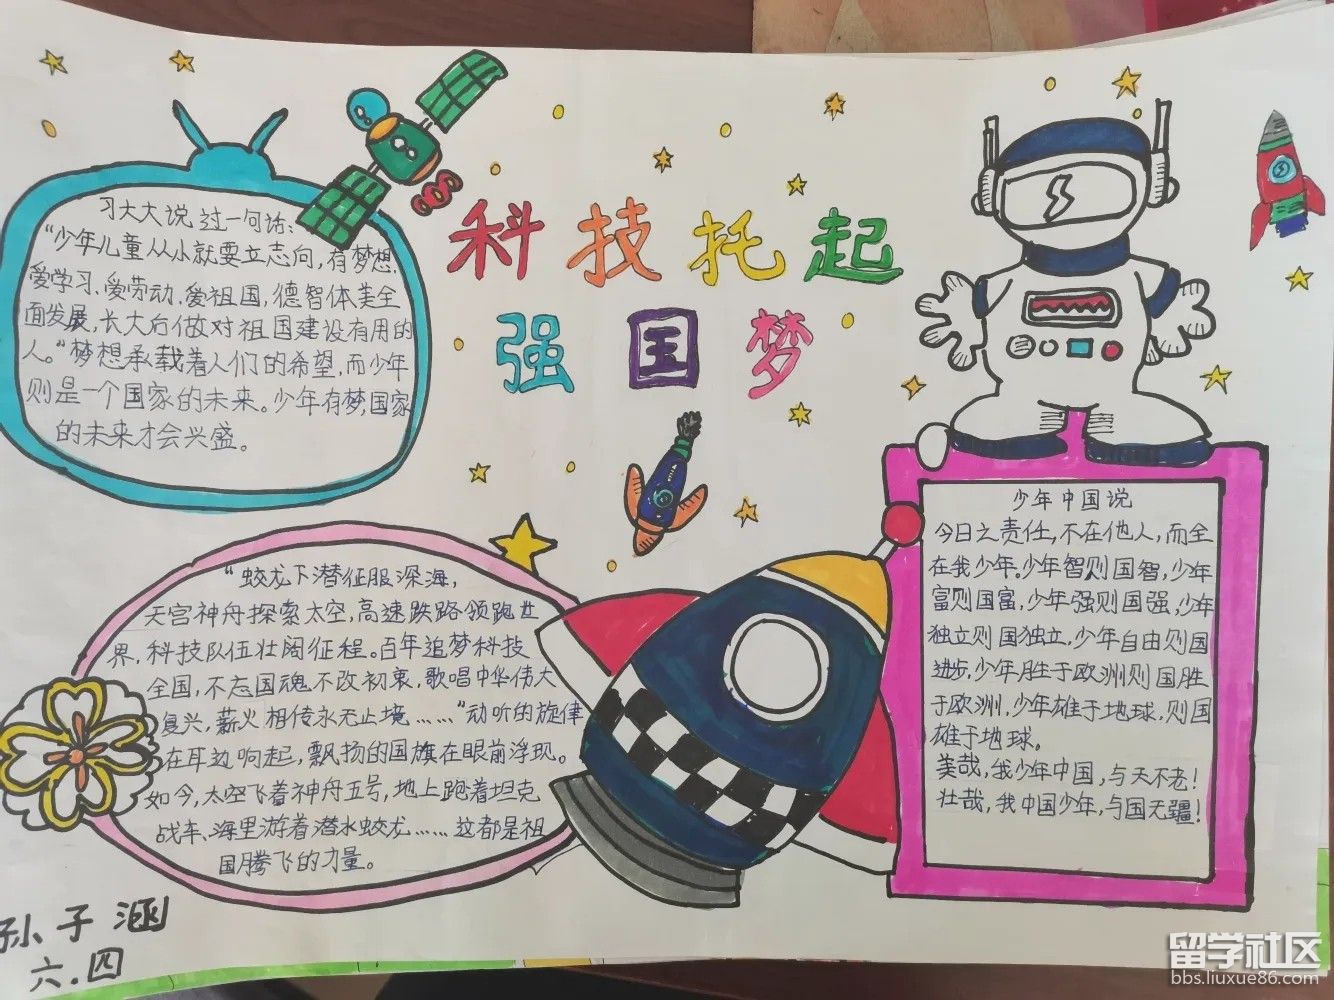 科技托起
强国梦
习大大说过一句话：
“少年儿童从小就要立志向，有梦想，
爱学习、爱劳动、爱祖国，德智体美全
面发展，长大后做对祖国建设有用的
人。”梦想承载着人们的希望，而少年
则是一个国家的未来。少年有梦，国家
的未来才会兴盛。
“蛟龙下潜征服深海，
天宫神舟探索太空，高速跌路领跑世
界，科技队伍壮阔征程。百年追梦科技
全国，不忘国魂不改初衷，歌唱中华伟大
复兴，薪火相传永无止境……”动听的旋律
在耳边响起，飘扬的国旗在眼前浮现。
如今，太空飞着神舟五号，地上跑着坦克
战车、海里游着潜水蛟龙……这都是祖
国腾飞的力量。
少年中国说
今日之责任，不在他人，而全
在我少年。少年智则国智，少年
富则国富，少年强则国强，少年
独立则国独立，少年自由则国
进步，少年胜于欧洲则国胜
于欧洲，少年雄于地球，则国
雄于地球。
美哉，我少年中国，与天不老！
壮哉，我中国少年，与国无疆！
孙子涵
六.四
留学社区
bbs.liuxue86.com